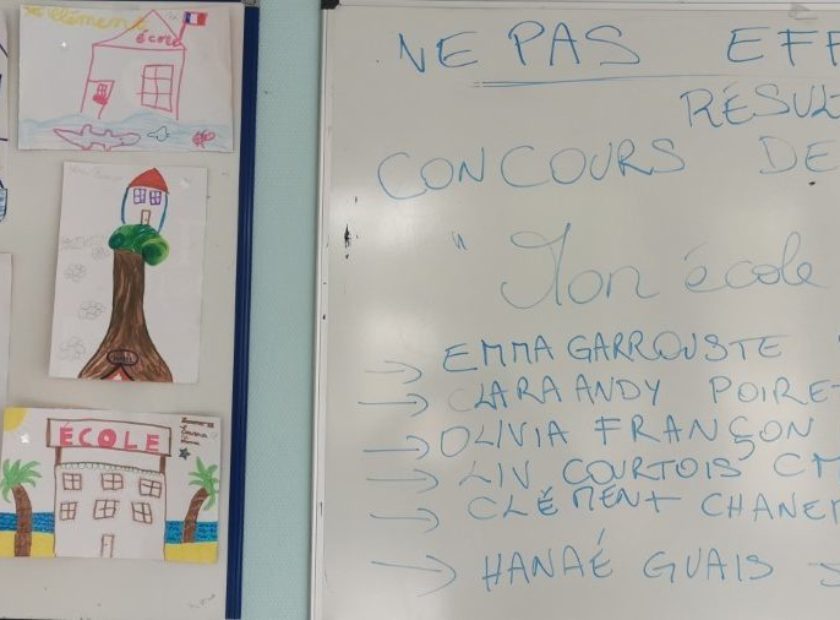 Clément
école
ECOLE
NE PAS EFF
RÉSULT
CONCOURS DE
" Mon école
→ EMMA GARROUSTE
→ CLARA ANDY POIRE
→ OLIVIA FRANÇON
→ LIV COURTOIS CM
→ CLÉMENT CHANE
→ HANAÉ GUAIS